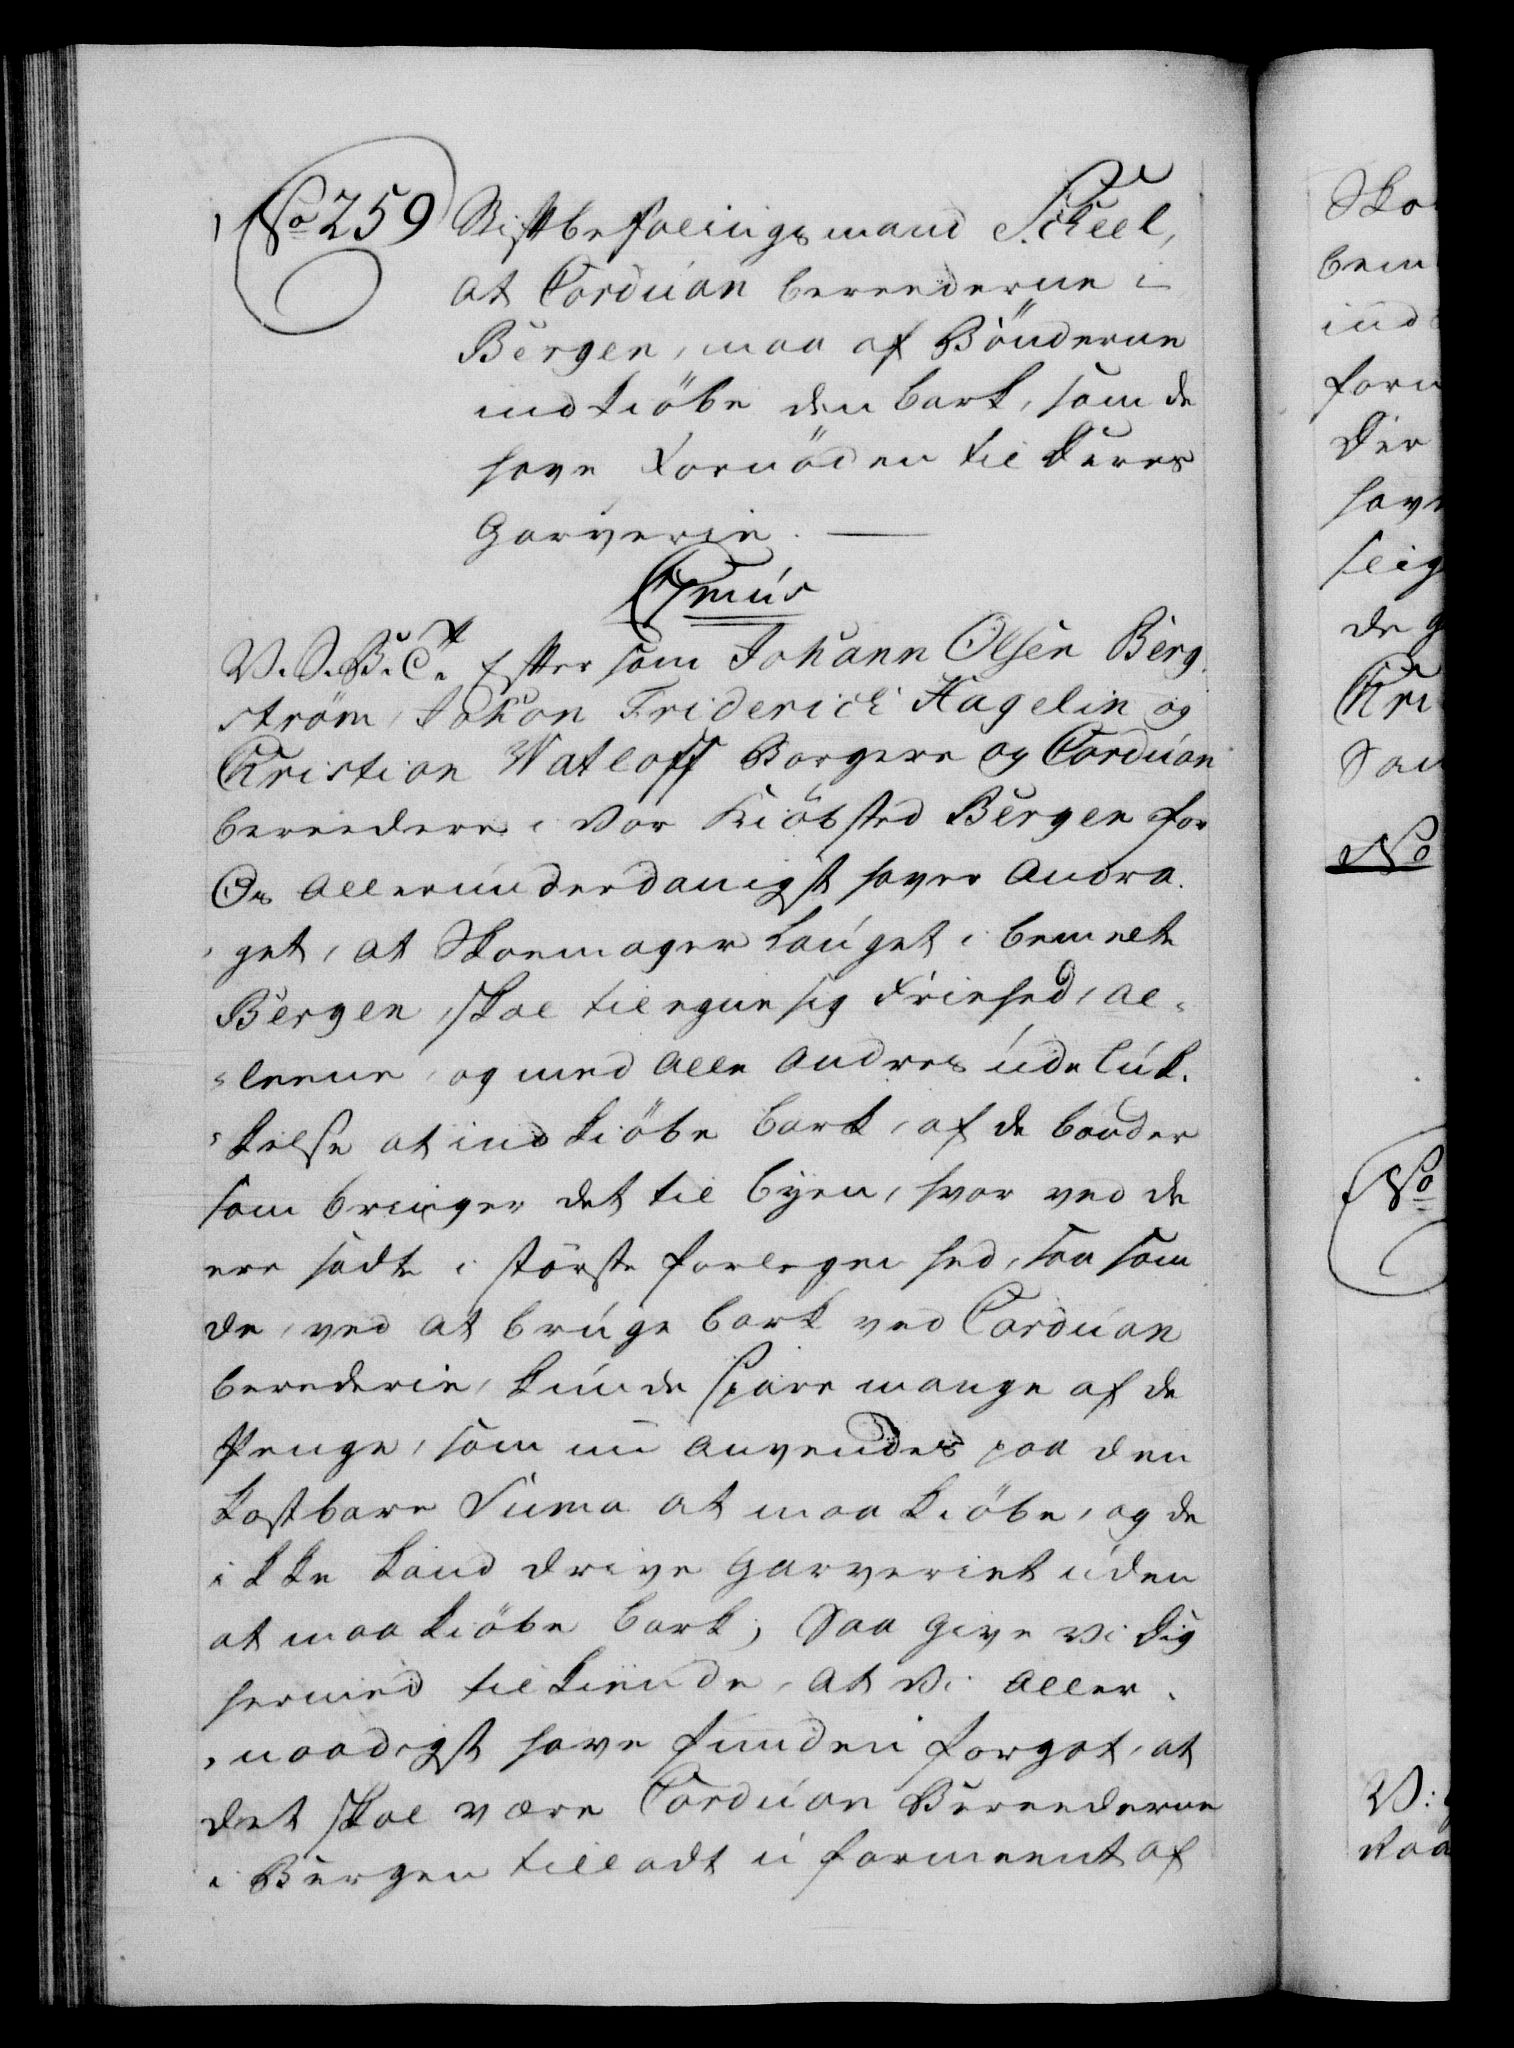 No 259 Stiftbefalingsmand Scheel,
at Corduan bereederne i
Bergen, maa af Bönderne
indkiöbe den bark, som de
have Fornöden til deres
Garverie.
V. S. B. C. Efter som Johann Olsen Berg-
ström, Johan Friderich Hagelin og
Christian Watloff Borgere og Corduan
bereedere i Vor Kiöbsted Bergen for
Os allerunderdanigst haver andra-
get, at Skoemager Lauget i bemelte
Bergen, skal tilegne sig Friehed, al-
leene, og med alle andres udeluk-
kelse at indkiöbe bark, af de bönder
som bringer det til byen, hvorved de
ere sadte i störste forlegenhed, saasom
de, ved at bruge bark ved Corduan
berederie, kunde spare mange af de
Penge, som nu anvendes paa den
kostbare Suma at maa kiöbe, og de
ikke kand drive Garveriet uden
at maa kiöbe bark; Saa give Vi dig
hermed tilkiende, at Vi aller-
naadigst have funden forgot, at
det skal være Corduan Bereederne
i Bergen tilladt uformeent af
Sko
bem
ind
forn
Der
have
seig
de g
Chri
San
No
No
V:
Raa